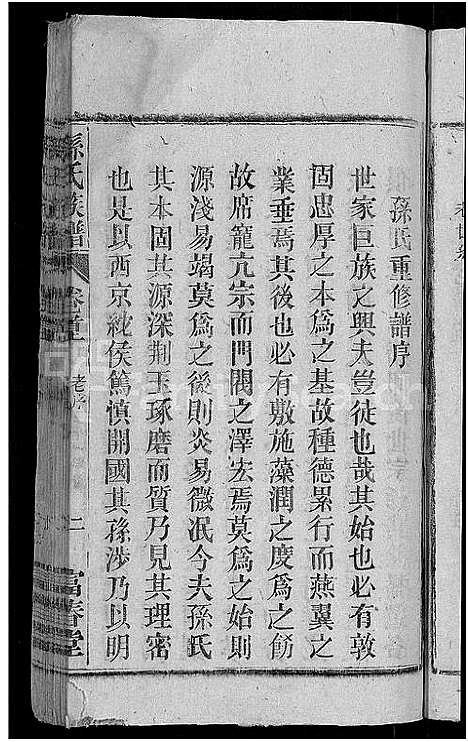 孫氏重修譜序
世家巨族之興夫豈徒也哉其始也必有敦
固忠厚之本為之基故種德累行而燕翼之
業垂焉其後也必有敷施藻潤之度為之飭
故席寵亢宗而門閥之澤宏焉莫為之始則
源淺易竭莫為之後則炎易微泯今夫孫氏
其本固其源深荆玉琢磨而質乃見其理密
也是以西京紞侯篤慎開國其孫涉乃以明
孫氏族譜 卷首 老序 二 富春堂